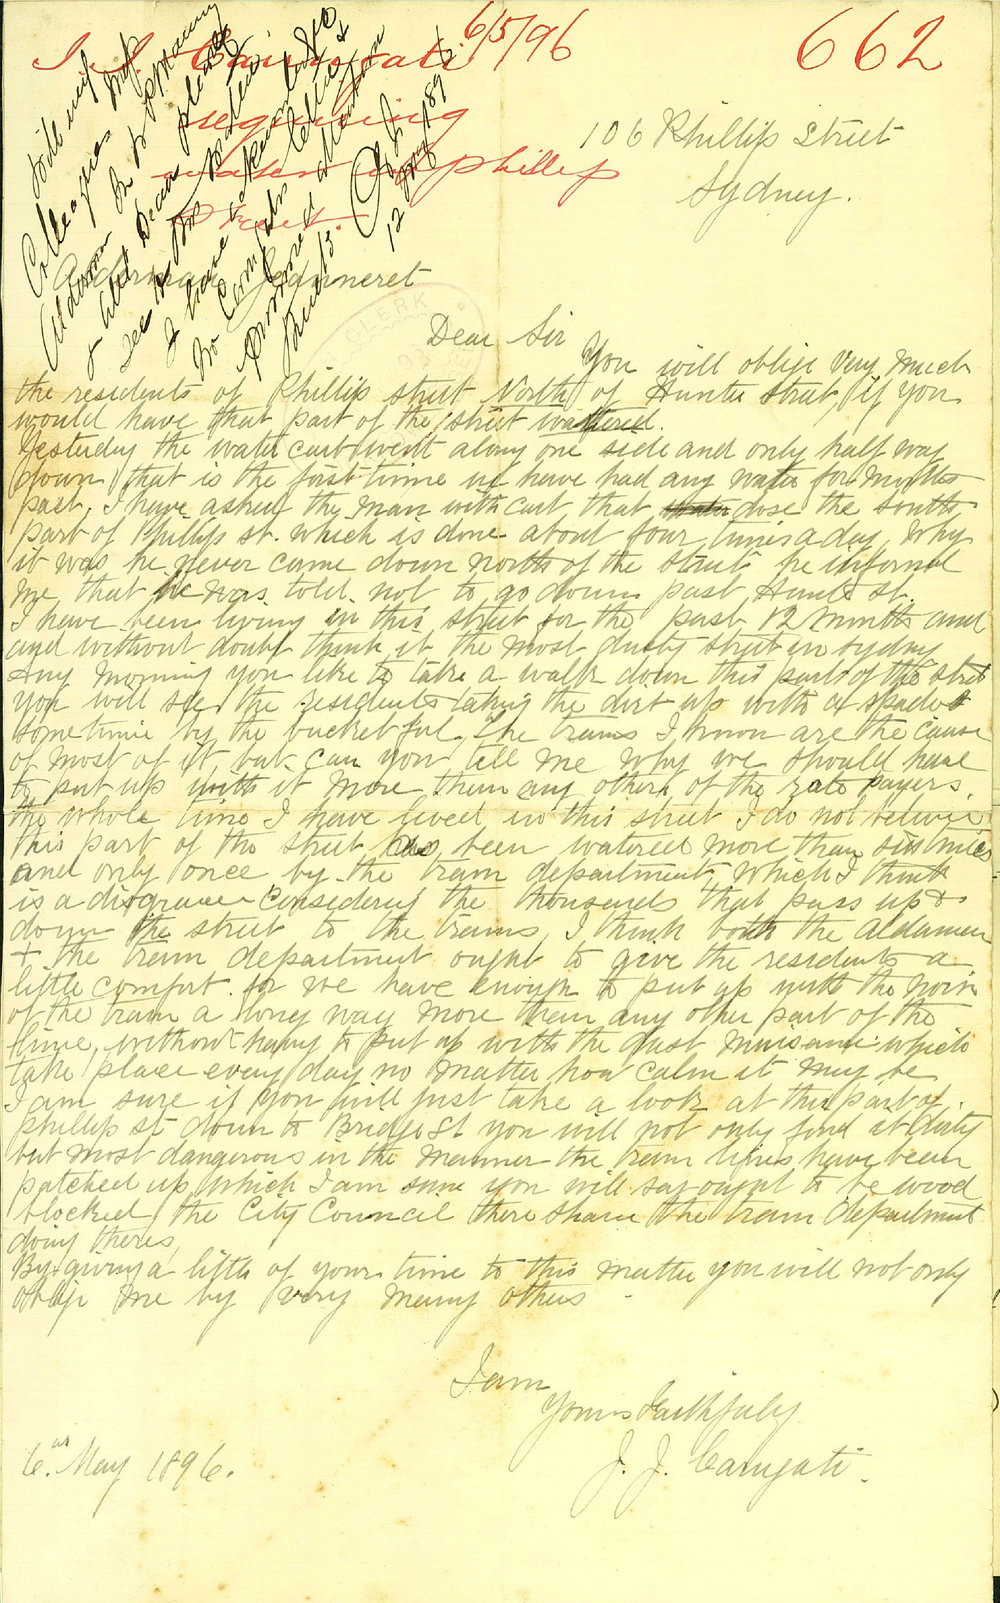 6/5/96
662
J. J. Carugati
requiring
water in Phillip
Street.
106 Phillip Street
Sydney.
Will my
Colleagues Ald
Alderman
& Ald Dean please
see to
I have
No complaints
12 May 1896
CLERK
Alderman Jeanneret
Dear Sir
You will oblige very much
the residents of Phillip street North of Hunter Street, if you
would have that part of the street watered.
Yesterday the water cart went along one side and only half way
down that is the first time we have had any water for months
past, I have asked the man with cart, that dose the south
part of Phillip st. which is done about four times a day, Why
it was he never came down north of the street he informed
me, that he was told not to go down past Hunter st.
I have been living in this street for the past 12 months and
and without doubt think it the most dusty street in Sydney
Any morning you like to take a walk down this part of the street
you will see the residents taking the dirt up with a spade &
sometime by the bucketful. The trams I know are the cause
of most of it, but can you tell me why we should have
to put up with it more than any others of the rate payers.
the whole time I have lived in this street I do not believe
this part of the street has been watered more than six times
and only once by the tram department, which I think
is a disgrace Considering the thousands that pass up &
down the street to the trams, I think both the aldermen
+ the tram department ought to give the residents a
little comfort for we have enough to put up with the noise
of the tram a long way more than any other part of the
line, without having to put up with the dust nuisance which
take place every day no matter how calm it may be
I am sure if you will just take a look at this part of
Phillip st down to Bridge St you will not only find it dirty
but most dangerous in the manner the tram lines have been
patched up which I am sure you will say ought to be wood
blocked, the City Council there share the tram department
doing theres,
By giving a little of your time to this matter you will not only
oblige me by very many others
I am
Yours Faithfuly
J. J. Carugati.
6th May 1896.